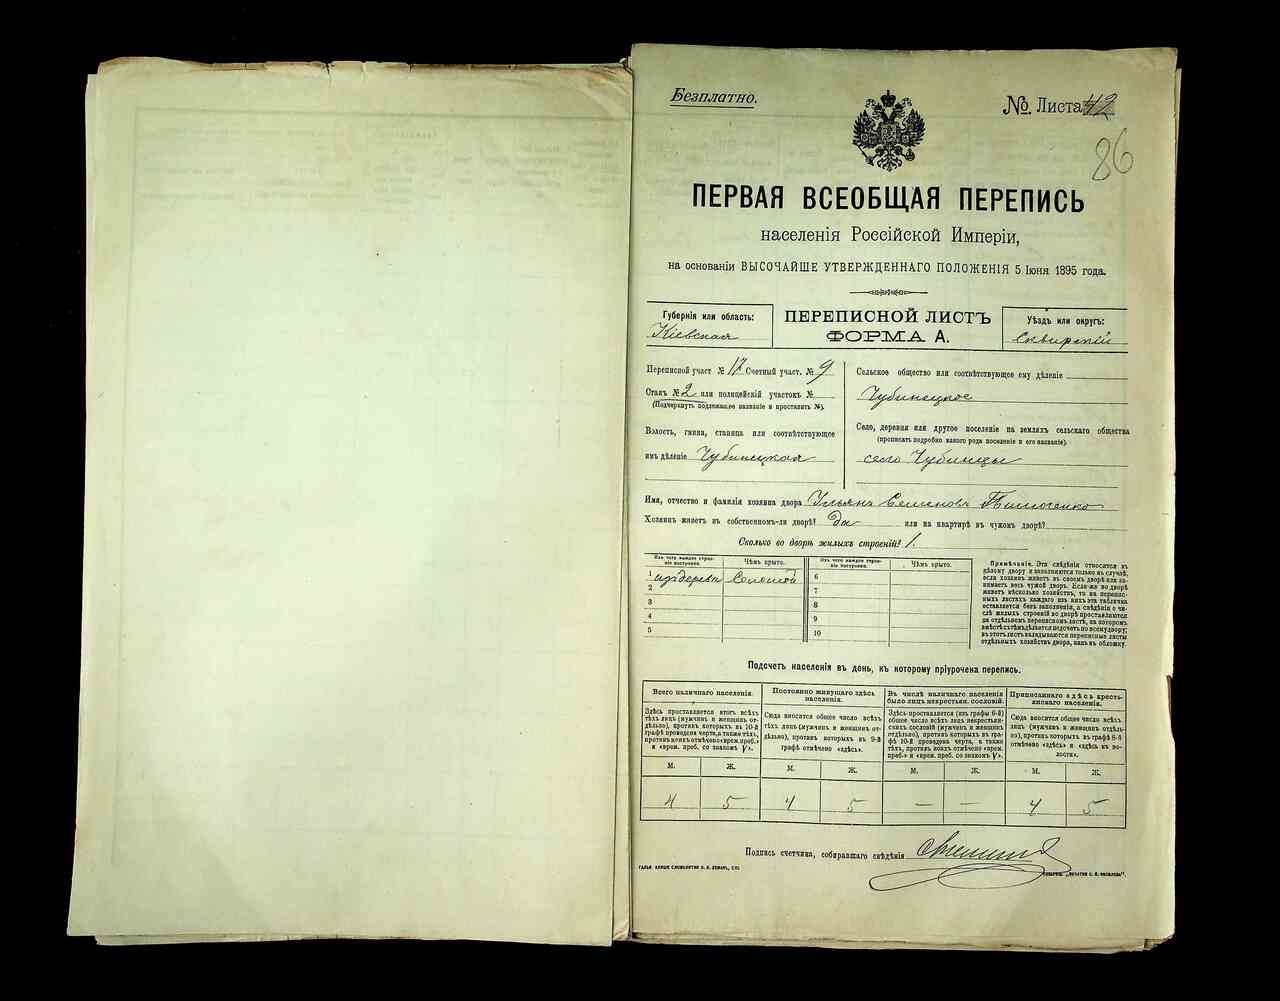 Безплатно.
№ Листа 42
86
ПЕРВАЯ ВСЕОБЩАЯ ПЕРЕПИСЬ
населенія Россійской Имперіи,
на основаніи ВЫСОЧАЙШЕ УТВЕРЖДЕННАГО ПОЛОЖЕНІЯ 5 Іюня 1895 года.
Губернія или область:
Кіевская
ПЕРЕПИСНОЙ ЛИСТЪ
ФОРМА А.
Уѣздъ или округъ:
Сквирскій
Переписной участ № 17 Счетный участ. № 9
Станъ № 2 или полицейскій участокъ №
(Подчеркнуть подлежащее названіе и проставить №).
Волость, гмина, станица или соотвѣтствующее
имъ дѣленіе Чубинецкая
Сельское общество или соотвѣтствующее ему дѣленіе
Чубинецкое
Село, деревня или другое поселеніе на земляхъ сельскаго общества
(прописать подробно какого рода поселеніе и его названіе).
село Чубинцы
Имя, отчество и фамилія хозяина двора Ульянъ Семеновъ Тимошенко
Хозяинъ живетъ въ собственномъ-ли дворѣ? Да или на квартирѣ въ чужомъ дворѣ?
Сколько во дворѣ жилыхъ строеній? 1.
Изъ чего каждое строеніе построено.
Чѣмъ крыто.
Изъ чего каждое строеніе построено.
Чѣмъ крыто.
1 издерева Соломой
2
3
4
5
6
7
8
9
10
Примѣчаніе. Эти свѣдѣнія относятся къ
цѣлому двору и заполняются только въ случаѣ,
если хозяинъ живетъ въ своемъ дворѣ или занимаетъ
весь чужой дворъ. Если-же во дворѣ
живетъ нѣсколько хозяйствъ, то на переписныхъ
листахъ каждаго изъ нихъ эта табличка
оставляется безъ заполненія, а свѣдѣнія о числѣ
жилыхъ строеній во дворѣ проставляются
на отдѣльномъ переписномъ листѣ, на которомъ
вмѣстѣ съ тѣмъ дѣлается подсчетъ по всему двору;
въ этотъ листъ вкладываются переписные листы
отдѣльныхъ хозяйствъ двора, какъ въ обложку.
Подсчетъ населенія въ день, къ которому пріурочена перепись.
Всего наличнаго населенія.
Здѣсь проставляется итогъ всѣхъ
тѣхъ лицъ (мужчинъ и женщинъ отдѣльно),
противъ которыхъ въ 10-й
графѣ проведена черта, а также тѣхъ,
противъ коихъ отмѣчено «врем. преб.»
и «врем. преб. со знакомъ V».
Постоянно живущаго здѣсь
населенія.
Сюда вносится общее число всѣхъ
тѣхъ лицъ (мужчинъ и женщинъ отдѣльно),
противъ которыхъ въ 9-й
графѣ отмѣчено «здѣсь».
Въ числѣ наличнаго населенія
было лицъ некрестьян. сословій.
Здѣсь проставляется (изъ графы 6-й)
общее число всѣхъ лицъ некрестьянскихъ
сословій (мужчинъ и женщинъ
отдѣльно), противъ которыхъ въ графѣ
10-й проведена черта, а также
тѣхъ, противъ коихъ отмѣчено «врем.
преб.» и «врем. преб. со знакомъ V».
Приписаннаго здѣсь крестьянскаго
населенія.
Сюда вносится общее число всѣхъ
лицъ (мужчинъ и женщинъ отдѣльно),
противъ которыхъ въ графѣ 8-й
отмѣчено «здѣсь» и «здѣсь въ волости».
М. Ж. М. Ж. М. Ж. М. Ж.
4 5 4 5 — — 4 5
Подпись счетчика, собиравшаго свѣдѣнія